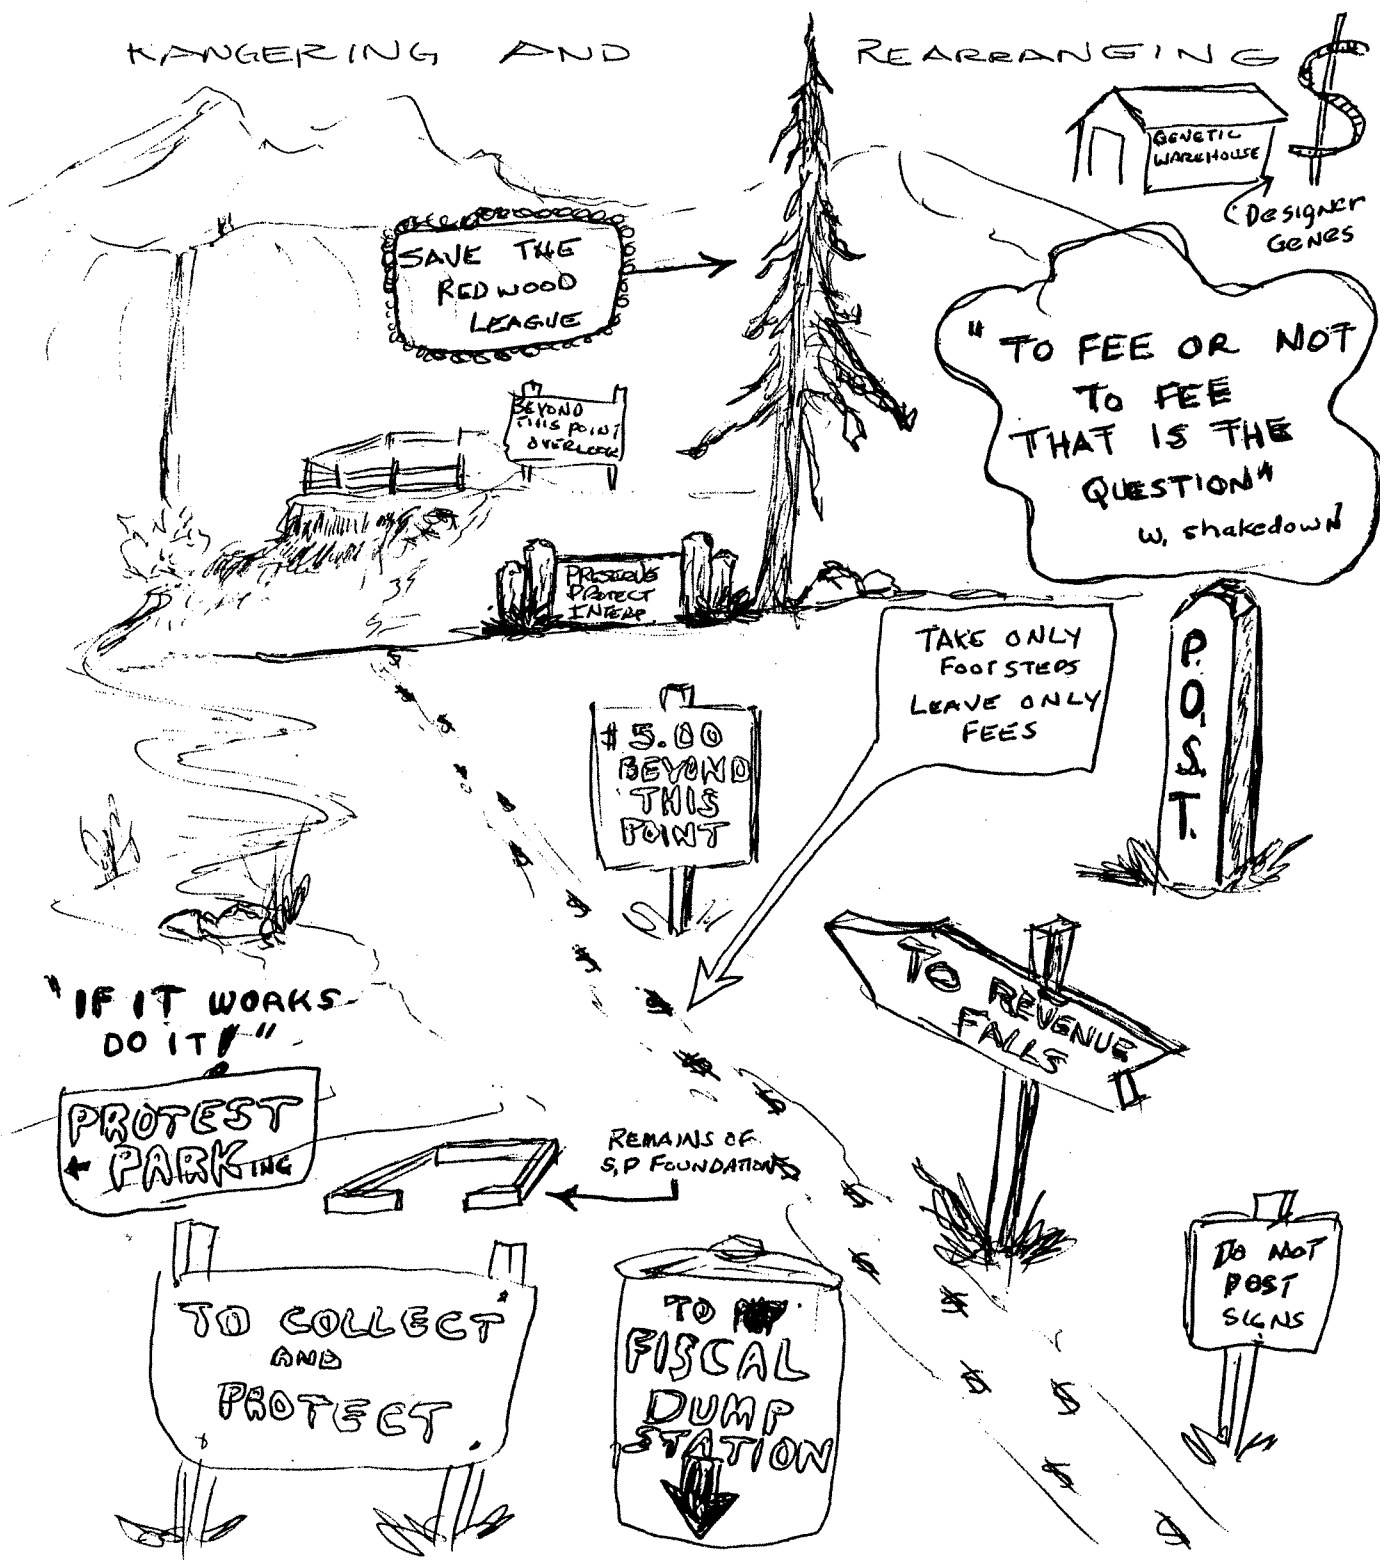 KANGERING AND REARRANGING
$
GENETIC
WAREHOUSE
DESIGNER
GENES
SAVE THE
REDWOOD
LEAGUE
"TO FEE OR NOT
TO FEE
THAT IS THE
QUESTION"
W. Shakedown
BEYOND
THIS POINT
OVERLOOK
PRESERVE
PROTECT
INTERP.
TAKE ONLY
FOOTSTEPS
LEAVE ONLY
FEES
P.O.S.T.
$5.00
BEYOND
THIS
POINT
TO REVENUE
FALLS
"IF IT WORKS
DO IT!"
PROTEST
PARKING
REMAINS OF
S.P FOUNDATIONS
TO COLLECT
AND
PROTECT
TO
FISCAL
DUMP
STATION
DO NOT
POST
SIGNS